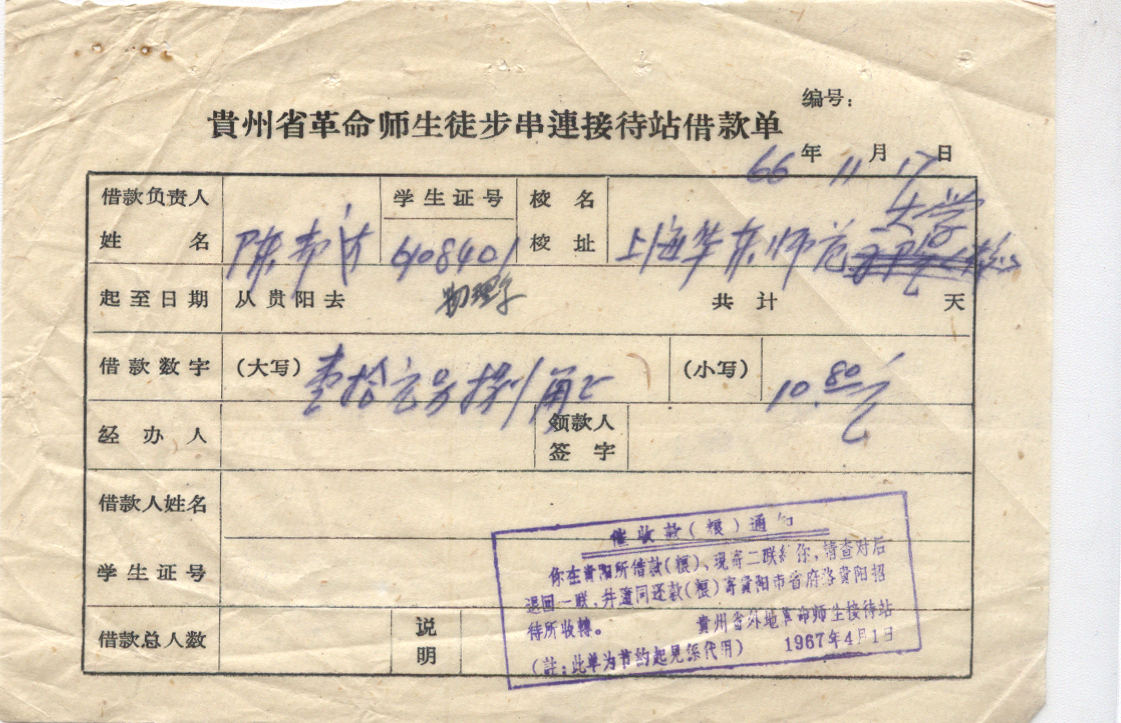 编号：
貴州省革命师生徒步串連接待站借款单
66年11月17日
借款负责人
姓名
学生证号
6108401
校名
校址
上海华东师范大学
起至日期
从贵阳去
物理系
共计 天
借款数字
(大写)
壹拾元另捌角
(小写)
10.80元
经办人
领款人
签字
借款人姓名
学生证号
借款总人数
说
明
催收款(粮)通知
你在貴阳所借款(粮)、现寄二联给你，請查对后
退回一联，并連同还款(粮)寄貴阳市省府路貴阳招
待所收轉。 貴州省外地革命师生接待站
(註：此单为节约起見係代用) 1967年4月1日